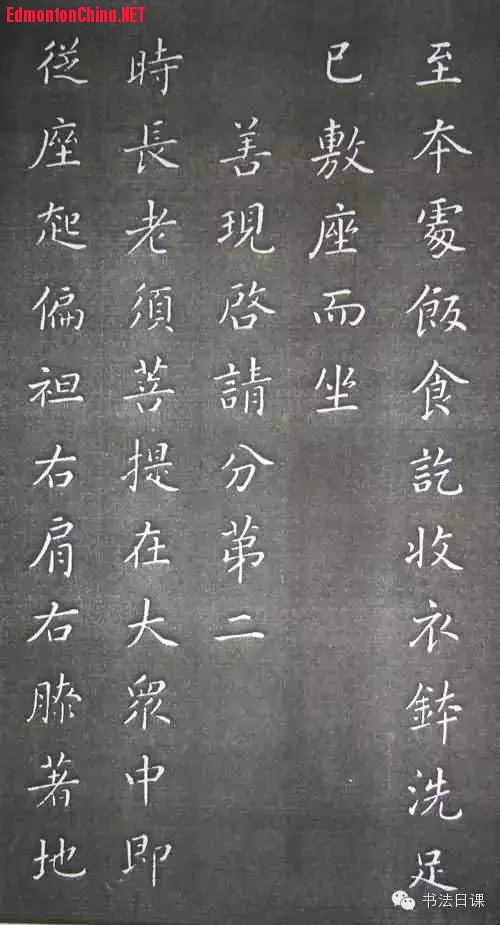 EdmontonChina.NET
至本處飯食訖收衣鉢洗足
已敷座而坐
善現啓請分第二
時長老須菩提在大衆中即
從座起偏袒右肩右膝著地
书法日课